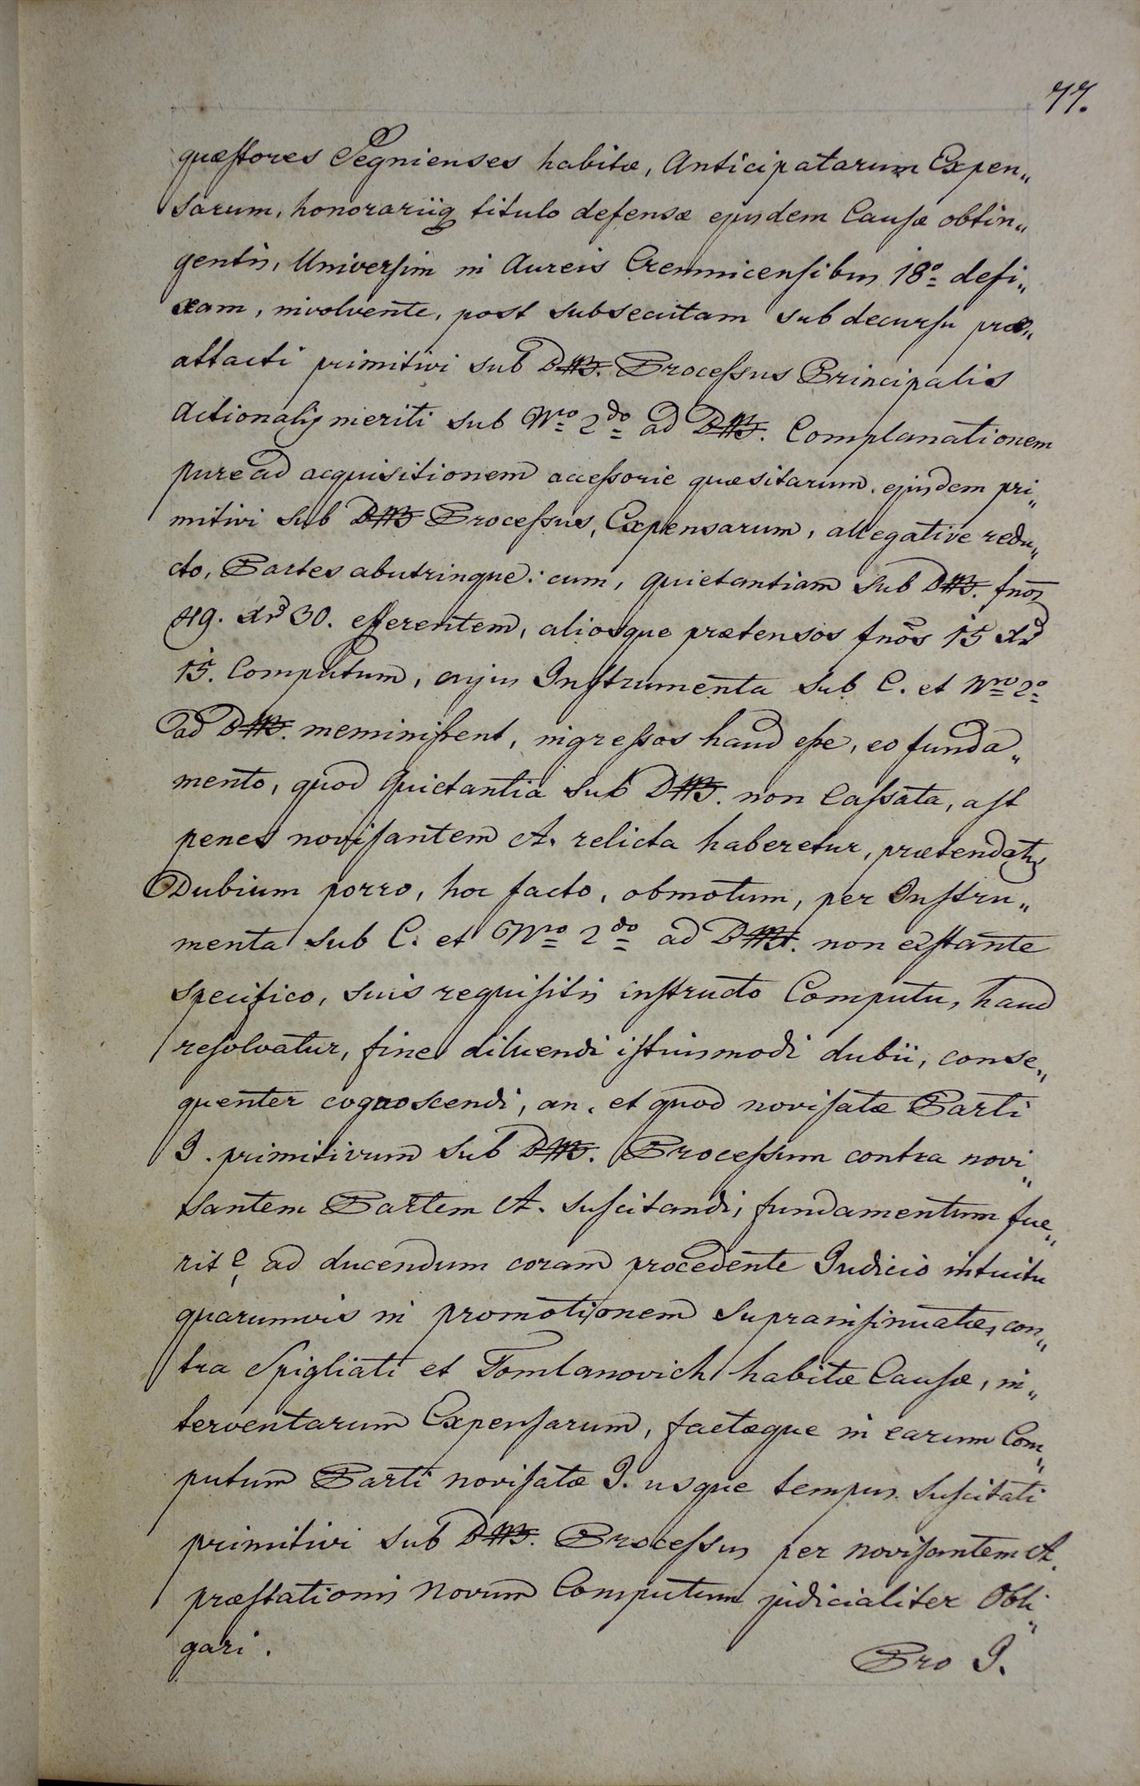 77.
quæstores Segnienses habitæ, Anticipatarum Expen„
sarum, honorariiq titulo defensæ ejusdem Causæ obtin„
gentis, Universim in Aureis Cremnicensibus 18º defi„
xam, involvente, post subsecutam sub decursu præ„
attacti primitivi sub Processus Principalis
Actionalis meriti sub Nro 2do ad Complanationem
pure ad acquisitionem accessorie quæsitarum ejusdem pri„
mitivi sub Processus, Expensarum, allegative redu„
cto, Partes abutrinque: cum, quietantiam sub fnos
49. Xr 30. efferentem, aliosque prætensos fnos 15 Xr
15. Computum, cujus Instrumenta sub C. et Nro 2º
ad meminissent, ingressos haud esse, eo funda„
mento, quod Quietantia sub non Cassata, ast
penes novisantem A. relicta haberetur, prætendatur
Dubium porro, hoc facto, obmotum, per Instru„
menta sub C. et Nro 2do ad non exstante
specifico, suis requisitis instructo Computu, haud
resolvatur, fine diluendi istiusmodi dubii, conse„
quenter cognoscendi, an, et quod novisatæ Parti
I. primitivum sub Processum contra novi„
santem Partem A. suscitandi, fundamentum fue„
rit? ad ducendum coram procedente Judicio intuitu
quarumvis in promotionem suprainsinuatæ, con„
tra Spigliati et Tomlanovich habitæ Causæ, in„
terventarum Expensarum, factæque in earum Com„
putum Parti novisatæ I. usque tempus suscitati
primitivi sub Processus per novisantem A.
præstationis novum Computum judicialiter Obli„
gari.
Pro I.